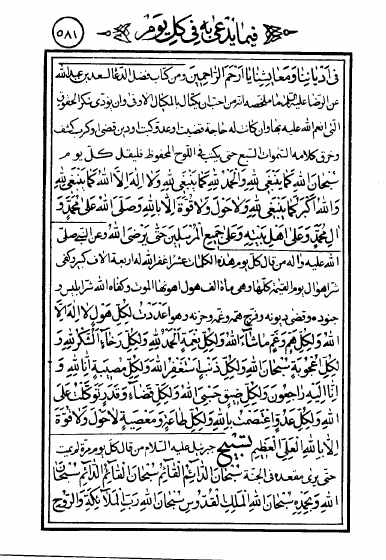 فيما يدعى به في كل يوم ٥٨١
في أدياننا ومعايشنا يا ارحم الراحمين ومن كتاب فضل الدعاء لسعد بن عبد الله
عن الرضا عليه السلام ما ملخصه انه من احب ان يكتال بالمكيال الاوفى وان يؤدى شكر الحقوق
التى انعم الله عليه بها وان كانت له حاجة قضيت وعدو كبت ودين قضى وكرب كشف
وخرق كلامه السموات السبع حتى يكتب فى اللوح المحفوظ فليقل كل يوم
سبحان الله كما ينبغى لله والحمد لله كما ينبغى لله ولا اله الا الله كما ينبغى لله
والله اكبر كما ينبغى لله ولا حول ولا قوة الا بالله وصلى الله على محمد و
ال محمد وعلى اهل بيته وعلى جميع المرسلين حتى يرضى الله وعن النبى صلى
الله عليه واله من قال كل يوم هذه الكلمات عشرا غفر الله له اربعة الاف كبيرة وكفى
شر اهوال يوم القيمة كلها وهى مائة الف هول اهونها الموت وكفاه الله شر ابليس و
جنوده وقضى ديونه وفرج همه وغمه وحزنه وهو اعددت لكل هول لا اله الا
الله ولكل هم وغم ما شاء الله ولكل نعمة الحمد لله ولكل رخاء الشكر لله و
لكل اعجوبة سبحان الله ولكل ذنب ستغفر الله ولكل مصيبة انا لله و
انا اليه راجعون ولكل ضيق حسبى الله ولكل قضاء وقدر توكلت على
الله ولكل عدو اعتصمت بالله ولكل طاعة ومعصية لا حول ولا قوة
الا بالله العلى العظيم تسبيح جبرئيل عليه السلام من قال كل يوم مرة لم يمت
حتى يرى مقعده فى الجنة سبحان الدائم القائم سبحان القائم الدائم سبحان
الله وبحمده سبحان الله الملك القدوس سبحان الله رب الملائكة والروح